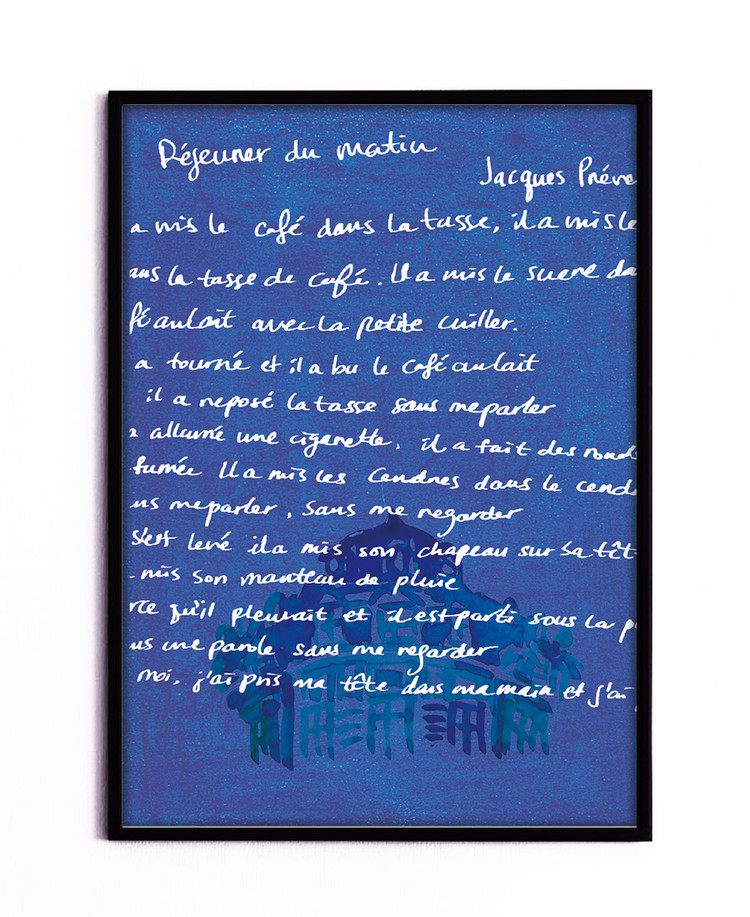 Déjeuner du matin
Jacques Préve
a mis le café dans la tasse, il a mis le
ans la tasse de café. Il a mis le sucre da
fé au lait avec la petite cuiller.
a tourné et il a bu le café au lait
il a reposé la tasse sans me parler
a allumé une cigarette, il a fait des rond
fumée Il a mis les Cendres dans le cend
ns me parler, sans me regarder
s'est levé il a mis son chapeau sur sa têt
mis son manteau de pluie
rce qu'il pleuvait et il est parti sous la p
us une parole sans me regarder
moi, j'ai pris ma tête dans ma main et j'ai